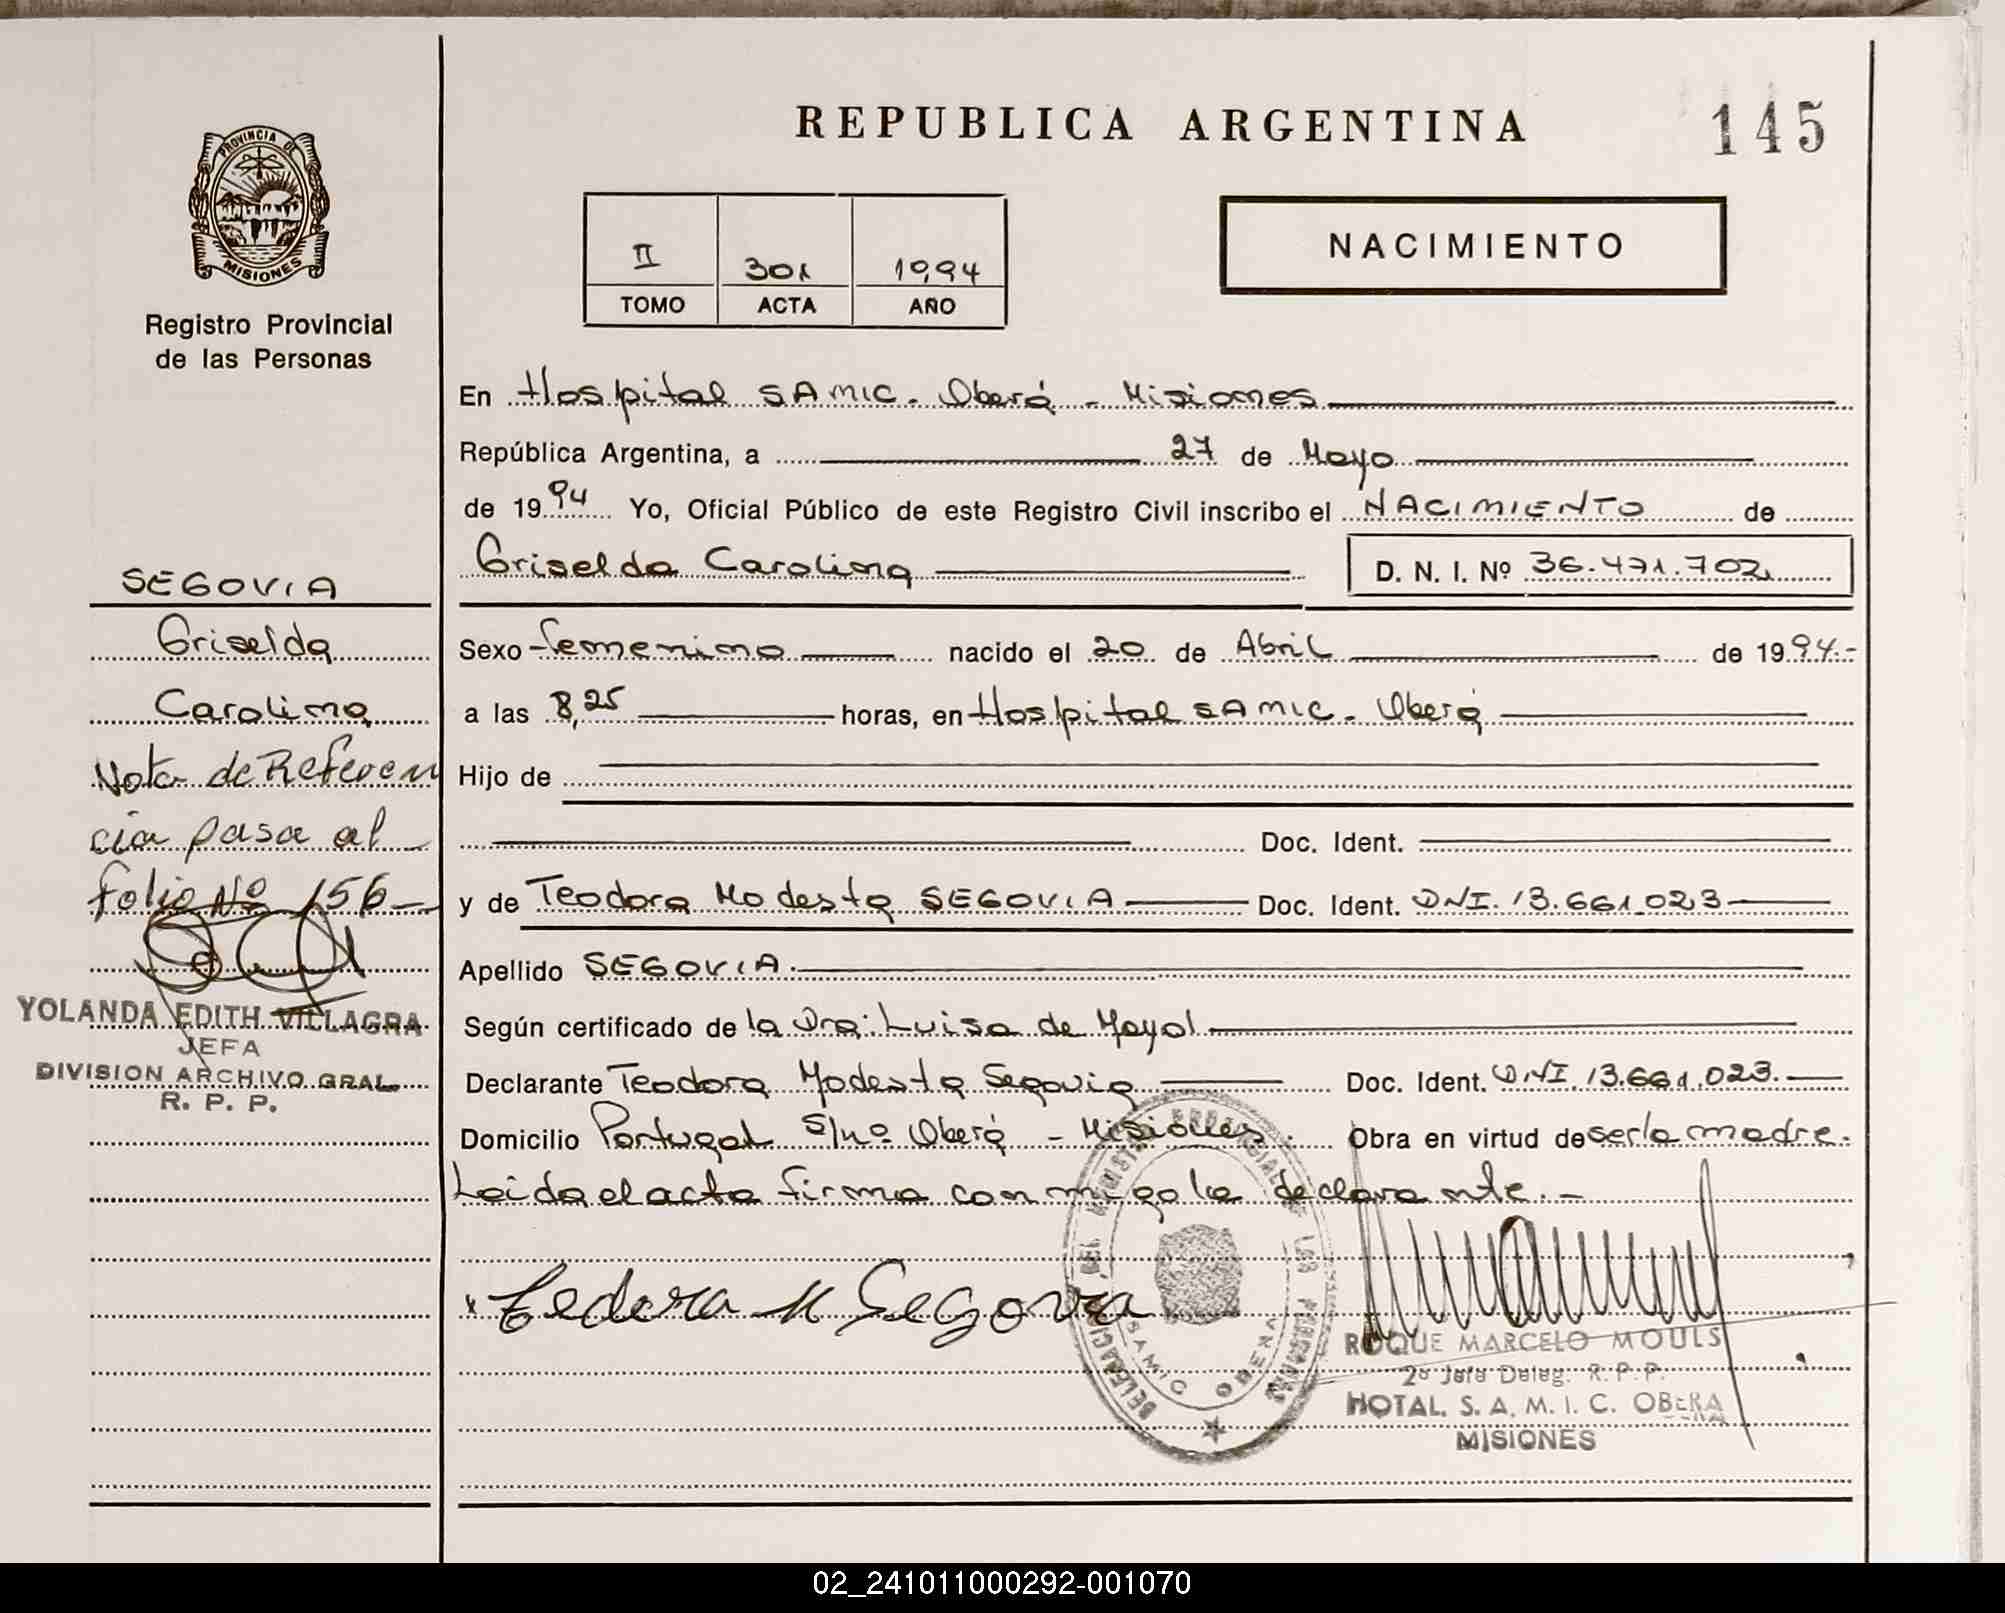 REPUBLICA ARGENTINA
145
PROVINCIA DE
MISIONES
Registro Provincial
de las Personas
II 301 1994
TOMO ACTA AÑO
NACIMIENTO
En Hospital SAMIC. Oberá - Misiones
República Argentina, a 27 de Mayo
de 1994 Yo, Oficial Público de este Registro Civil inscribo el NACIMIENTO de
Griselda Carolina D. N. I. Nº 36.471.702
Sexo femenino nacido el 20 de Abril de 1994.-
a las 8,25 horas, en Hospital SAMIC. Oberá
Hijo de
Doc. Ident.
y de Teodora Modesta SEGOVIA Doc. Ident. DNI. 13.661.023
Apellido SEGOVIA.
Según certificado de la Dra. Luisa de Mayol
Declarante Teodora Modesta Segovia Doc. Ident. DNI. 13.661.023.
Domicilio Portugal S/nº Oberá - Misiones. Obra en virtud de ser la madre.
Leida el acta firma conmigo la declarante.-
Tedora M Segovia
SEGOVIA
Griselda
Carolina
Nota de Referen
cia pasa al
Folio Nº 156
YOLANDA EDITH VILLAGRA
JEFA
DIVISION ARCHIVO GRAL.
R. P. P.
SAMIC OBERA
ROQUE MARCELO MOULS
2º Jefe Deleg. R. P. P.
HOTAL. S. A. M. I. C. OBERA
MISIONES
02_241011000292-001070